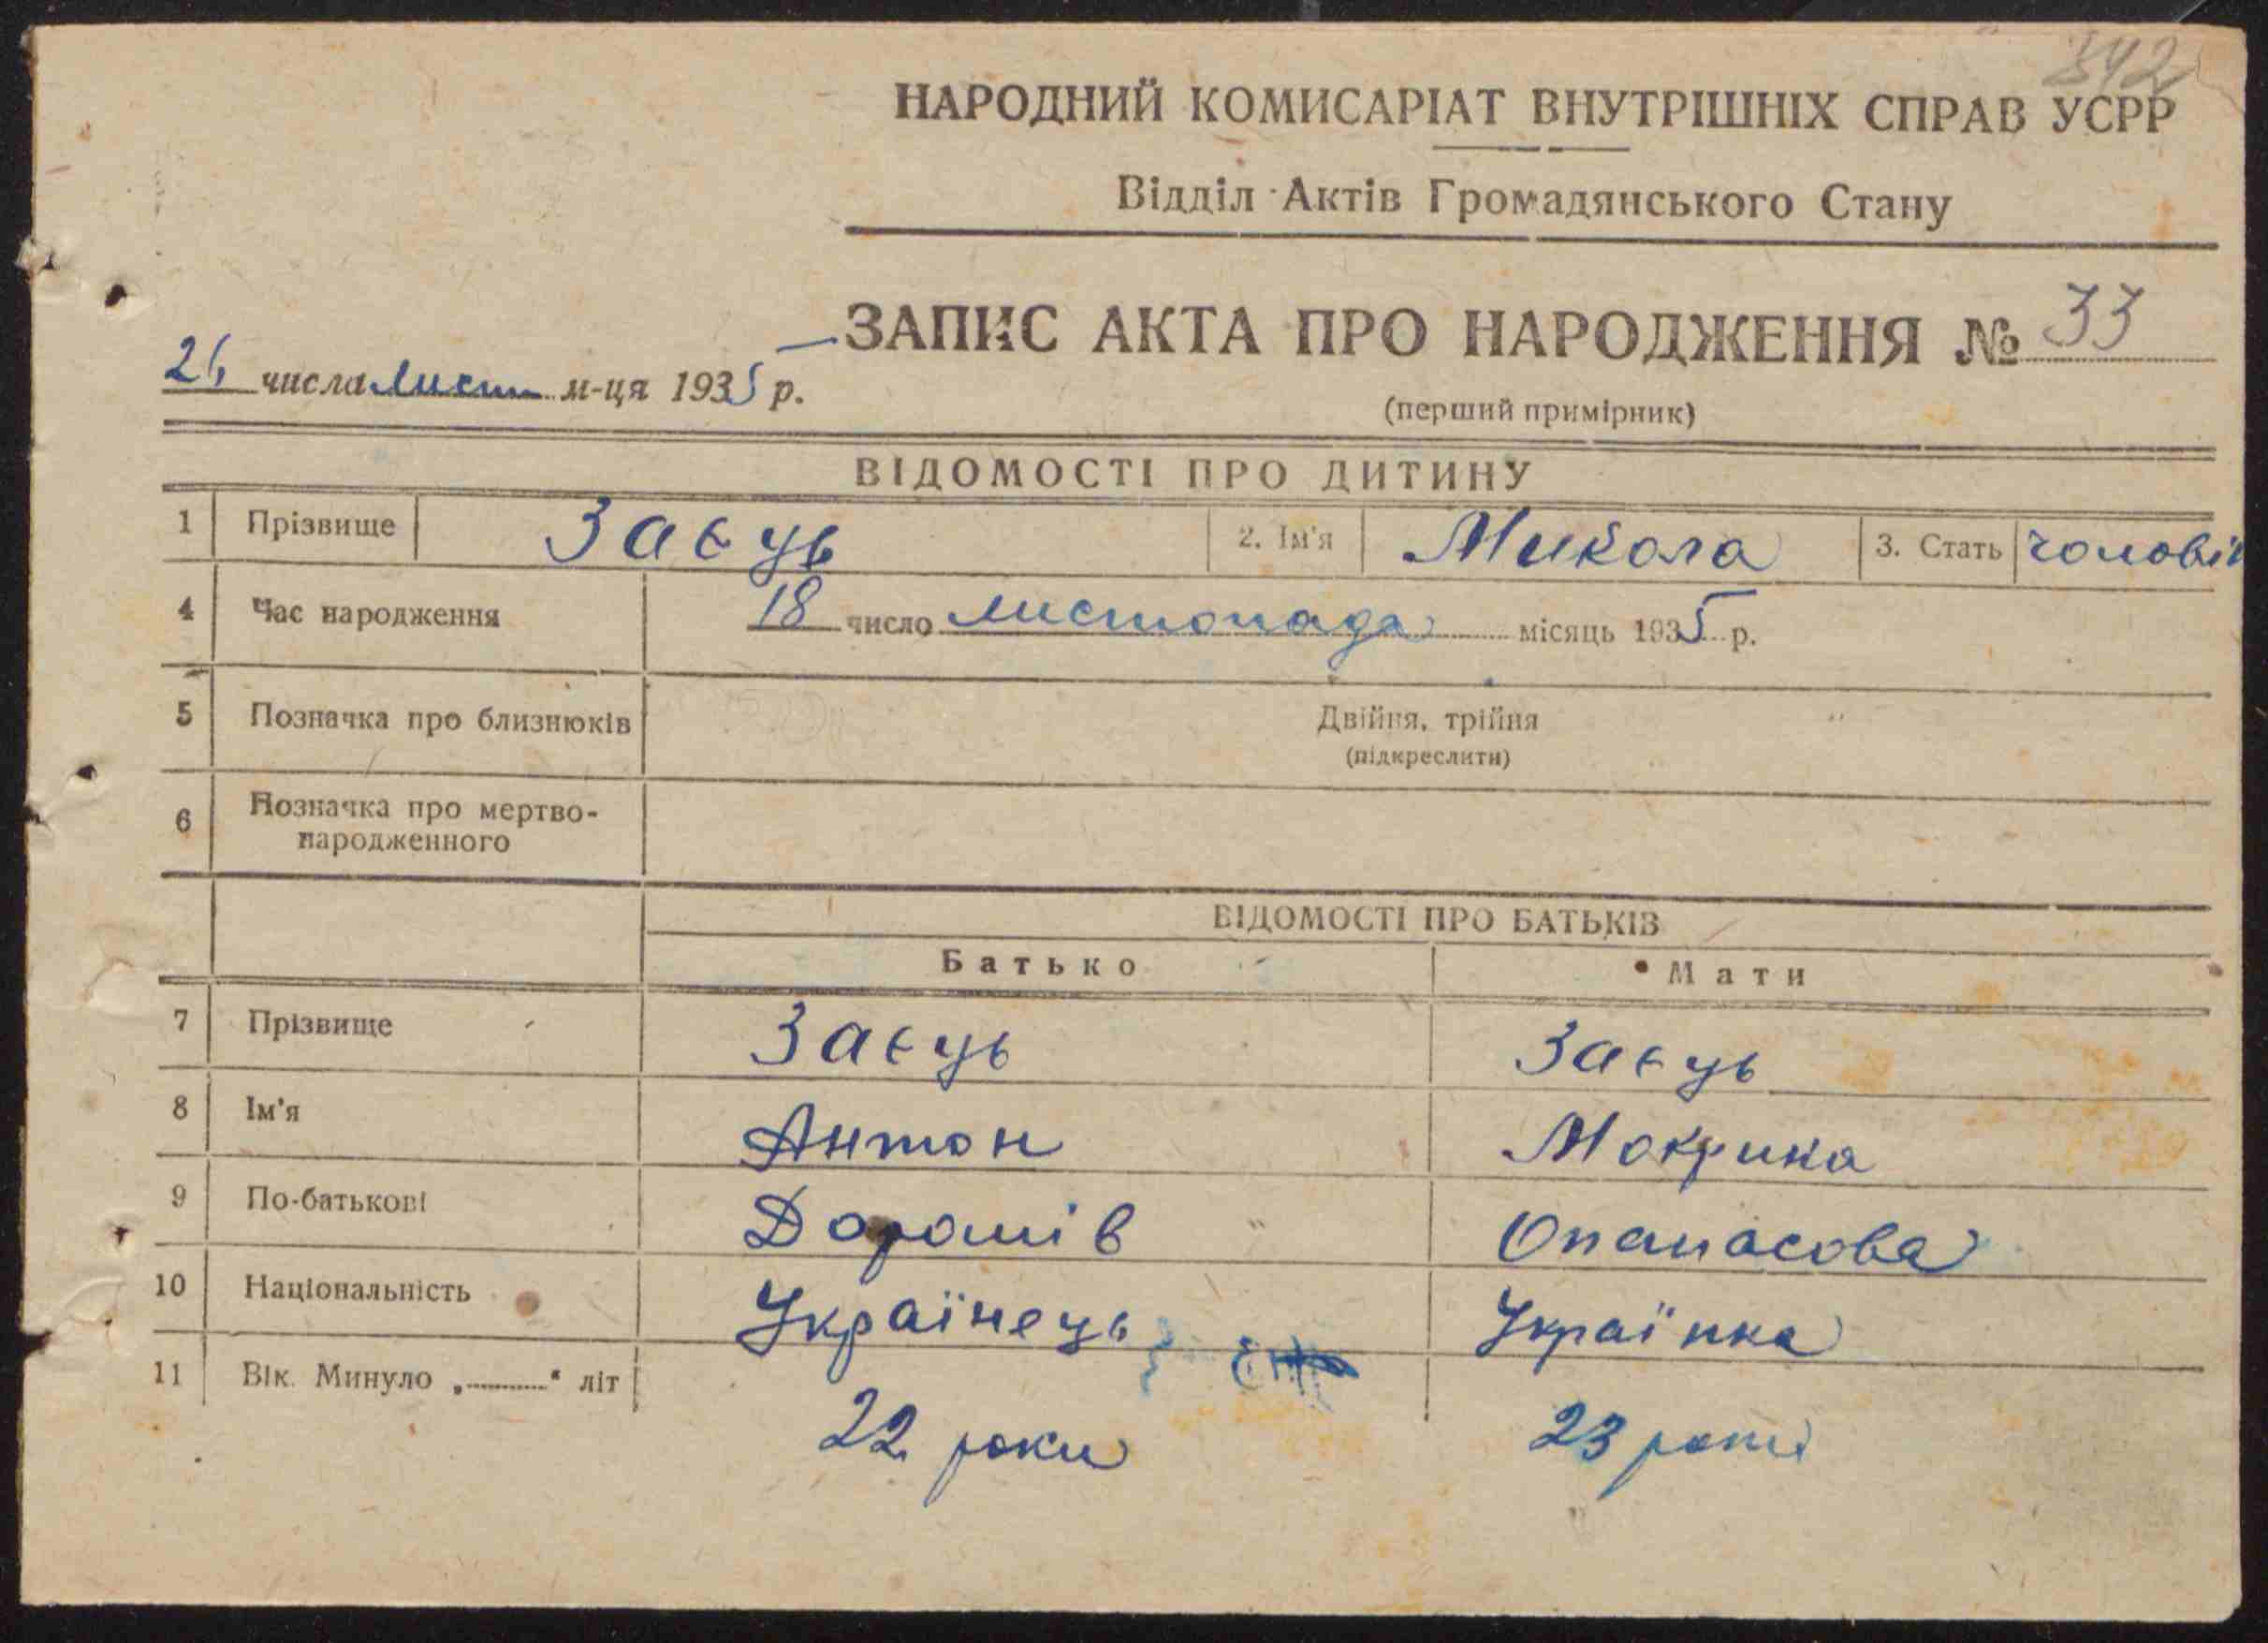 342
НАРОДНИЙ КОМИСАРІАТ ВНУТРІШНІХ СПРАВ УСРР
Відділ Актів Громадянського Стану
ЗАПИС АКТА ПРО НАРОДЖЕННЯ № 33
26 числа лист м-ця 1935 р.
(перший примірник)
ВІДОМОСТІ ПРО ДИТИНУ
1 Прізвище Заєць 2. Ім'я Микола 3. Стать чоловік
4 Час народження 18 число листопада місяць 1935 р.
5 Позначка про близнюків Двійня, трійня
(підкреслити)
6 Позначка про мертво-
народженного
ВІДОМОСТІ ПРО БАТЬКІВ
Батько Мати
7 Прізвище Заєць Заєць
8 Ім'я Антон Мокрина
9 По-батькові Дорошів Опанасова
10 Національність Українець Українка
11 Вік. Минуло „ “ літ
22 роки 23 роки